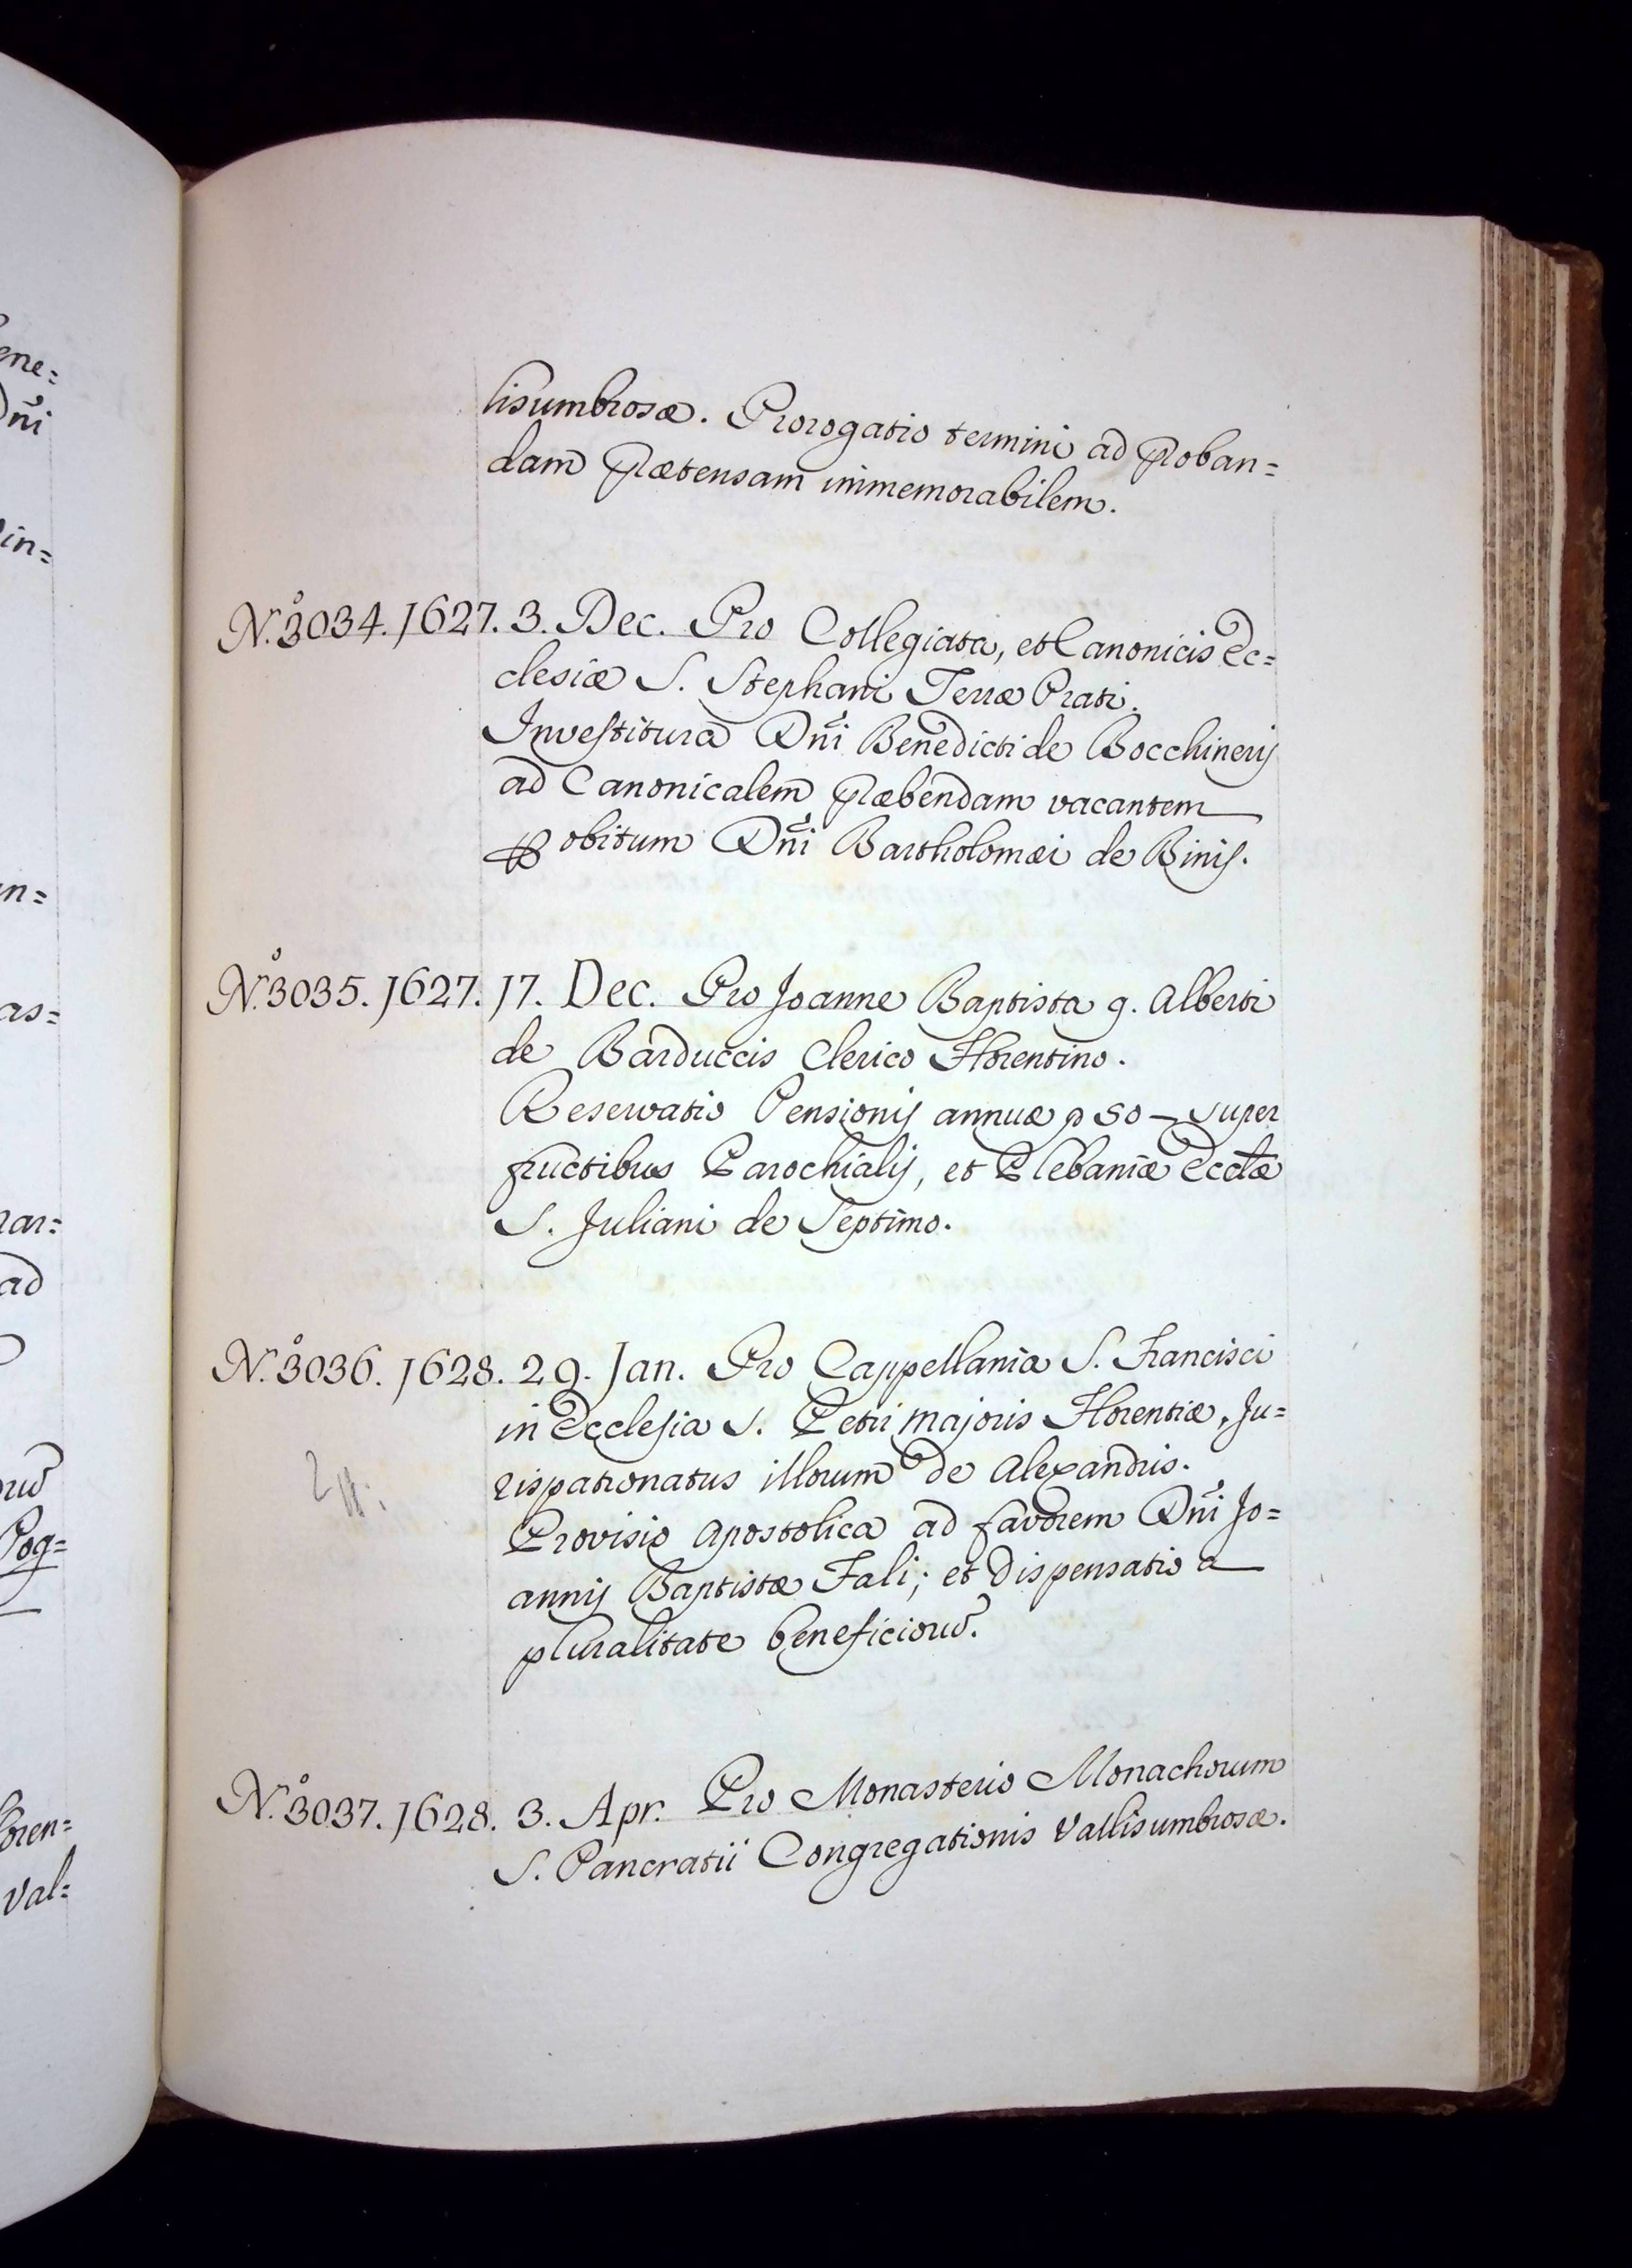 ene=
Dñi
in=
n=
as=
nar=
ad
Pog=
oren=
val=
lisumbrosæ. Prorogatio termini ad proban=
dam prætensam immemorabilem.
N.° 3034. 1627. 3. Dec. Pro Collegiata, et Canonicis Ec=
clesiæ S. Stephani Terræ Prati.
Investitura Dñi Benedicti de Bocchinerijs
ad Canonicalem præbendam vacantem
obitum Dñi Bartholomæi de Binis.
N.° 3035. 1627. 17. Dec. Pro Joanne Baptista q. Alberti
de Barduccis Clerico Florentino.
Reservatio Pensionis annuæ 50 – super
fructibus Parochialis, et Plebaniæ Ecctæ
S. Juliani de Septimo.
N.° 3036. 1628. 29. Jan. Pro Cappellania S. Francisci
in Ecclesia S. Petri Majoris Florentiæ, Ju=
rispatronatus illorum de Alexandris.
Provisio Apostolica ad favorem Dñi Jo=
annis Baptistæ Fali; et Dispensatio a
pluralitate beneficioru̅.
N.° 3037. 1628. 3. Apr. Pro Monasterio Monachorum
S. Pancratii Congregationis Vallisumbrosæ.